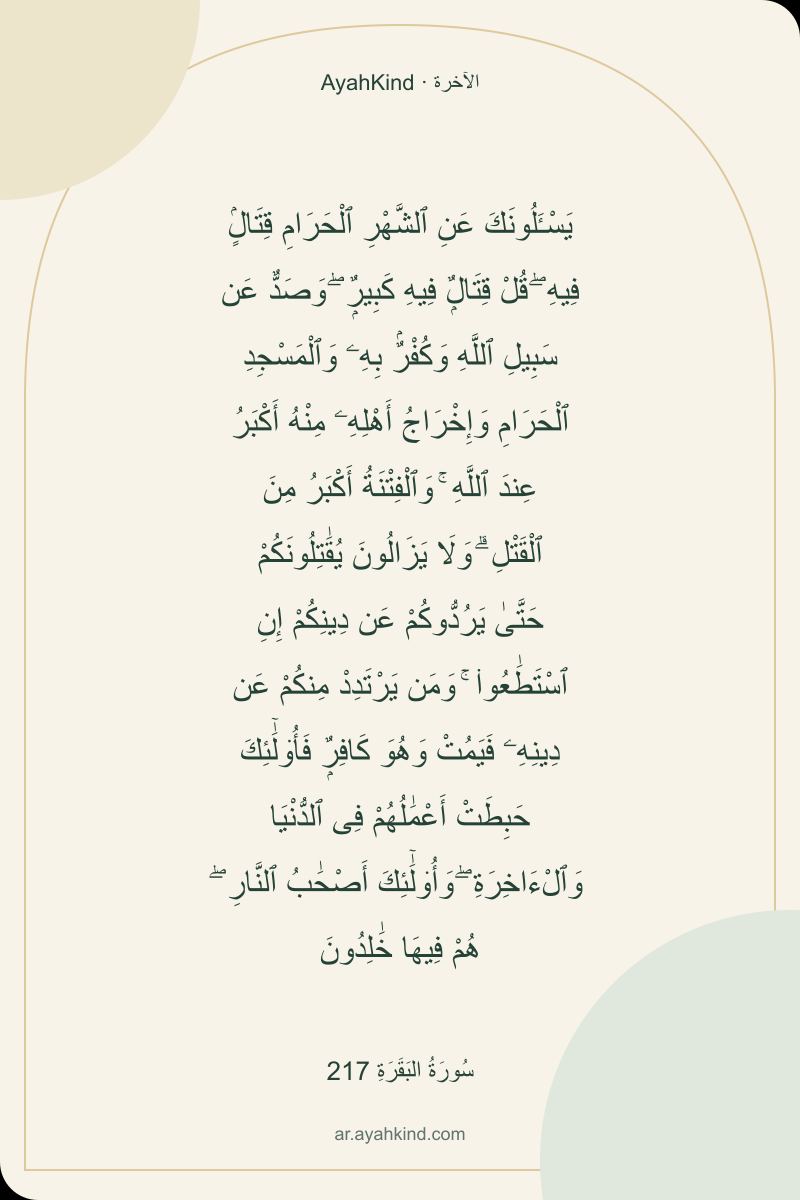 AyahKind · الآخرة
يَسْـَٔلُونَكَ عَنِ ٱلشَّهْرِ ٱلْحَرَامِ قِتَالٍۢ
فِيهِ ۖ قُلْ قِتَالٌۭ فِيهِ كَبِيرٌۭ ۖ وَصَدٌّ عَن
سَبِيلِ ٱللَّهِ وَكُفْرٌۢ بِهِۦ وَٱلْمَسْجِدِ
ٱلْحَرَامِ وَإِخْرَاجُ أَهْلِهِۦ مِنْهُ أَكْبَرُ
عِندَ ٱللَّهِ ۚ وَٱلْفِتْنَةُ أَكْبَرُ مِنَ
ٱلْقَتْلِ ۗ وَلَا يَزَالُونَ يُقَٰتِلُونَكُمْ
حَتَّىٰ يَرُدُّوكُمْ عَن دِينِكُمْ إِنِ
ٱسْتَطَٰعُوا۟ ۚ وَمَن يَرْتَدِدْ مِنكُمْ عَن
دِينِهِۦ فَيَمُتْ وَهُوَ كَافِرٌۭ فَأُو۟لَٰٓئِكَ
حَبِطَتْ أَعْمَٰلُهُمْ فِى ٱلدُّنْيَا
وَٱلْءَاخِرَةِ ۖ وَأُو۟لَٰٓئِكَ أَصْحَٰبُ ٱلنَّارِ ۖ
هُمْ فِيهَا خَٰلِدُونَ
سُورَةُ البَقَرَةِ 217
ar.ayahkind.com